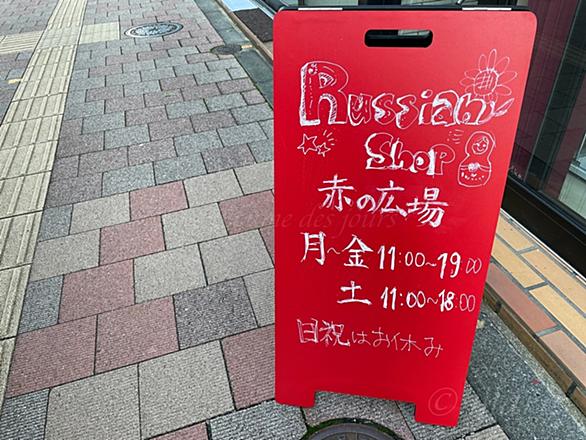 Russian
Shop
赤の広場
月~金 11:00~19:00
土 11:00~18:00
日祝はお休み
des jours
©